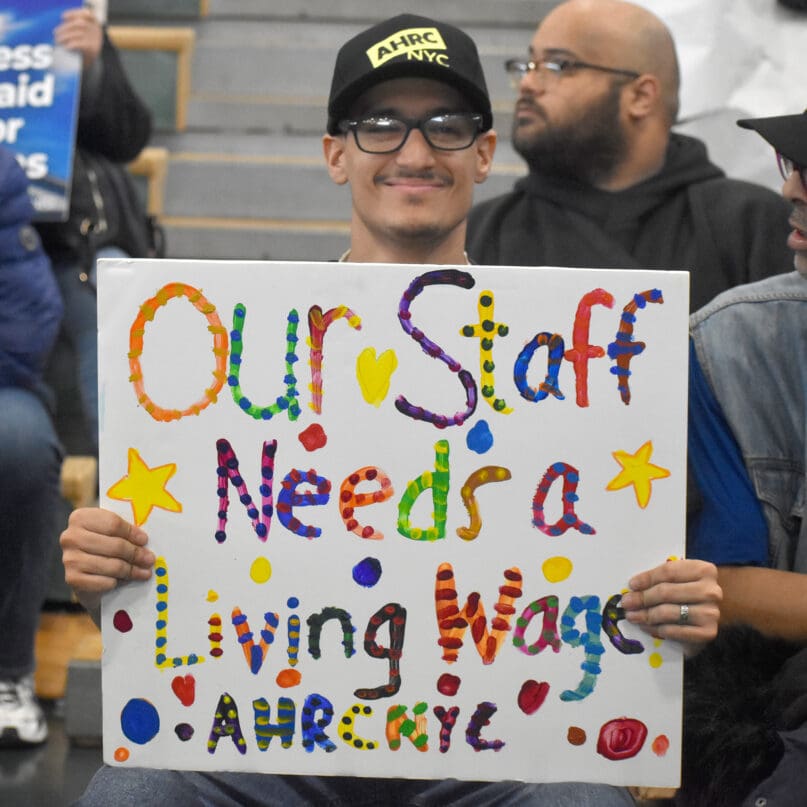 ess
aid
or
s
AHRC
NYC
Our Staff
Needs a
Living Wage!
AHRCNYC